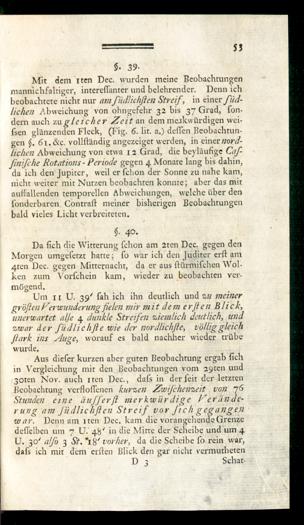 53
§. 39.
Mit dem 1ten Dec. wurden meine Beobachtungen
mannichfaltiger, interessanter und belehrender. Denn ich
beobachtete nicht nur am südlichsten Streif, in einer süd-
lichen Abweichung von ohngefehr 32 bis 37 Grad, son-
dern auch zu gleicher Zeit an dem merkwürdigen weis-
sen glänzenden Fleck, (Fig. 6. lit. a.) dessen Beobachtun-
gen §. 61. &c. vollständig angezeiget werden, in einer nord-
lichen Abweichung von etwa 12 Grad, die beyläufige Cas-
sinische Rotations-Periode gegen 4 Monate lang bis dahin,
da ich den Jupiter, weil er schon der Sonne zu nahe kam,
nicht weiter mit Nutzen beobachten konnte; aber das mit
auffallenden temporellen Abweichungen, welche über den
sonderbaren Contrast meiner bisherigen Beobachtungen
bald vieles Licht verbreiteten.
§. 40.
Da sich die Witterung schon am 2ten Dec. gegen den
Morgen umgesetzt hatte; so war ich den Jupiter erst am
4ten Dec. gegen Mitternacht, da er aus stürmischen Wol-
ken zum Vorschein kam, wieder zu beobachten ver-
mögend.
Um 11 U. 39' sah ich ihn deutlich und zu meiner
größten Verwunderung fielen mir mit dem ersten Blick,
unerwartet also 4 dunkle Streifen ziemlich deutlich, und
zwar der südlichste wie der nordlichste, völlig gleich
stark ins Auge, worauf es bald nachher wieder trübe
wurde.
Aus dieser kurzen aber guten Beobachtung ergab sich
in Vergleichung mit den Beobachtungen vom 29ten und
30ten Nov. auch 1ten Dec., daß in der seit der letzten
Beobachtung verflossenen kurzen Zwischenzeit von 76
Stunden eine äusserst merkwürdige Verände-
rung am südlichsten Streif vor sich gegangen
war. Denn am 1ten Dec. kam die vorangehende Grenze
desselben um 7 U. 48' in die Mitte der Scheibe und um 4
U. 30' also 3 St. 18' vorher, da die Scheibe so rein war,
daß ich mit dem ersten Blick den gar nicht vermutheten
D 3
Schat-